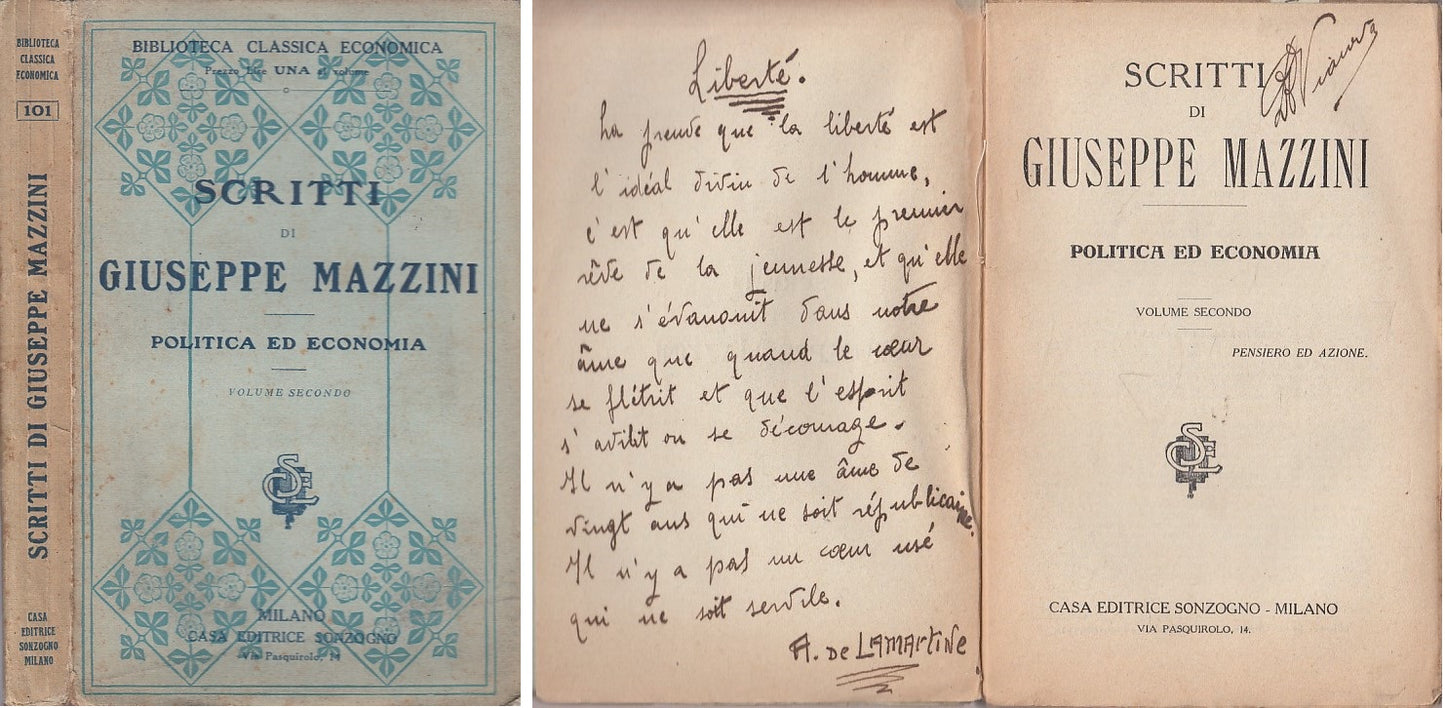 BIBLIOTECA
CLASSICA
ECONOMICA
101
SCRITTI DI GIUSEPPE MAZZINI
CASA
EDITRICE
SONZOGNO
MILANO
BIBLIOTECA CLASSICA ECONOMICA
Prezzo Lire UNA il volume
SCRITTI
DI
GIUSEPPE MAZZINI
POLITICA ED ECONOMIA
VOLUME SECONDO
MILANO
CASA EDITRICE SONZOGNO
Via Pasquirolo, 14
Liberté.
la preuve que la liberté est
l'idéal divin de l'homme,
c'est qu'elle est le premier
rêve de la jeunesse, et qu'elle
ne s'évanouit dans notre
âme que quand le cœur
se flétrit et que l'esprit
s'avilit ou se décourage.
Il n'y a pas une âme de
vingt ans qui ne soit républicaine.
Il n'y a pas un cœur usé
qui ne soit servile.
A. de LAMARTINE
SCRITTI
DI
GIUSEPPE MAZZINI
POLITICA ED ECONOMIA
VOLUME SECONDO
PENSIERO ED AZIONE.
CASA EDITRICE SONZOGNO - MILANO
VIA PASQUIROLO, 14.